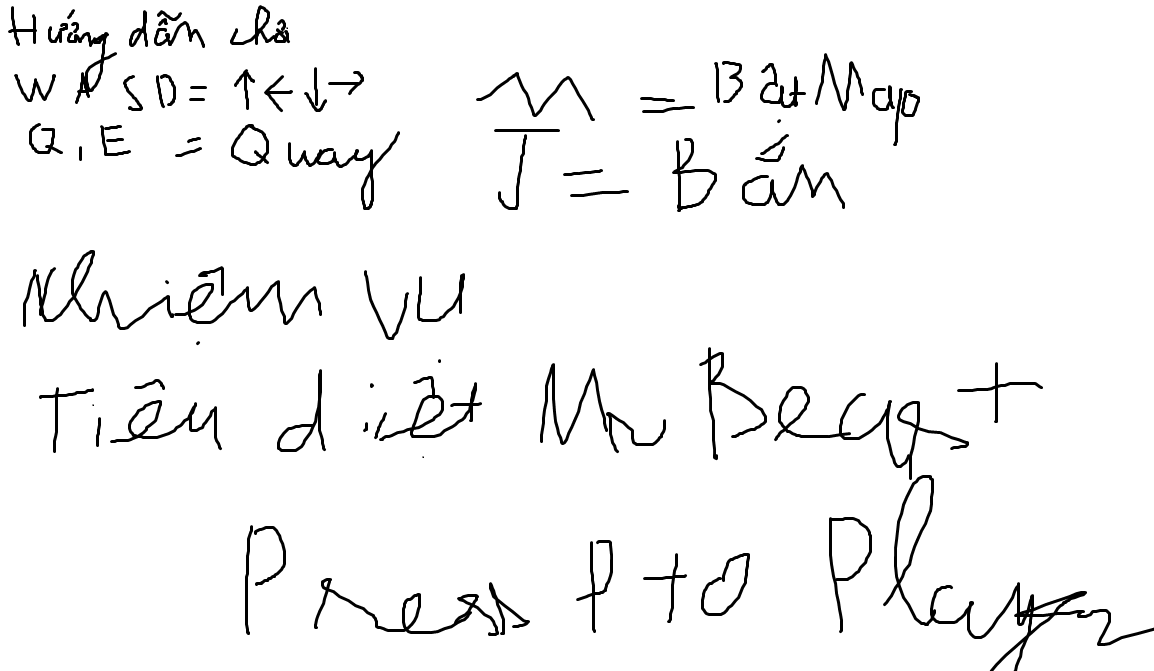 Hướng dẫn chơi
W A S D = ↑←↓→
Q, E = Quay
M = Bật Map
J = Bắn
Nhiệm vụ
Tiêu diệt Mr Beast
Press P to Play